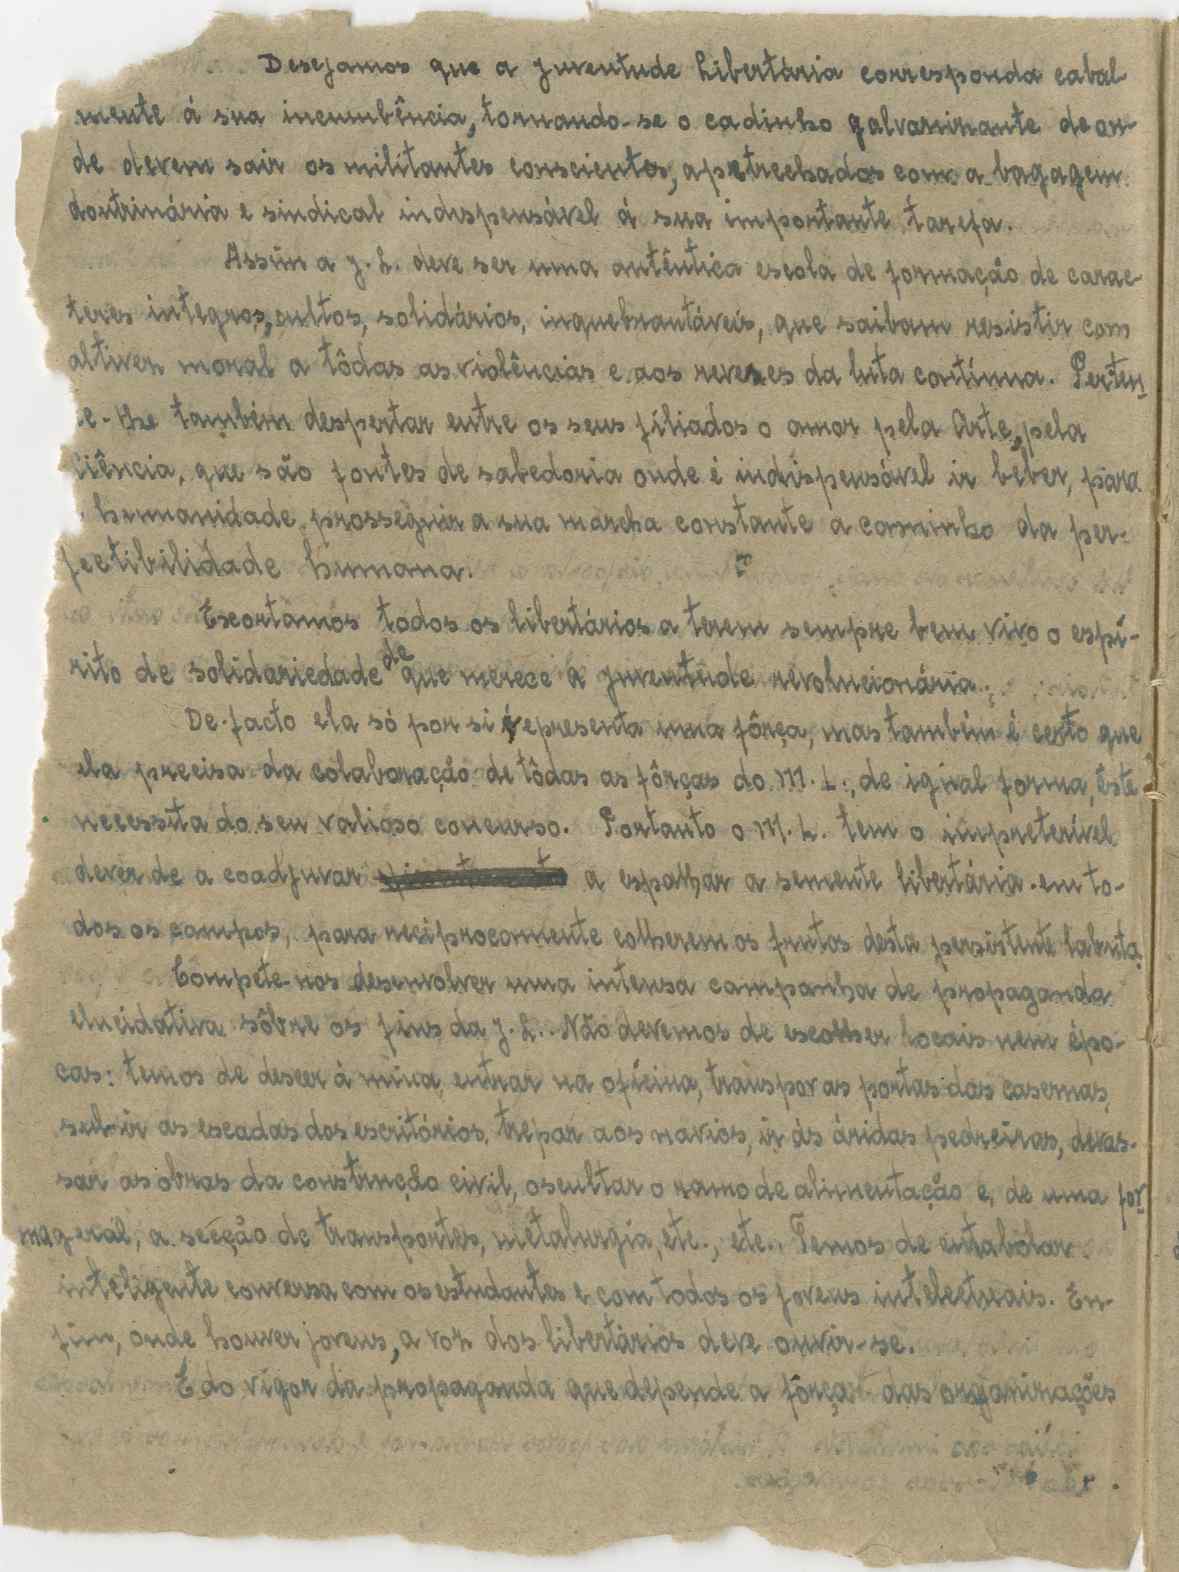 Desejamos que a juventude libertária corresponda cabal-
mente á sua incumbência, tornando-se o cadinho galvanizante de on-
de devem sair os militantes conscientes, apetrechados com a bagagem
doutrinária e sindical indispensável á sua importante tarefa.
Assim a J. L. deve ser uma autêntica escola de formação de carac-
teres integros, cultos, solidários, inquebrantáveis, que saibam resistir com
altivez moral a tôdas as violências e aos revezes da luta contínua. Perten
ce-lhe também despertar entre os seus filiados o amor pela Arte, pela
Ciência, que são fontes de sabedoria onde é indispensável ir beber, para
a humanidade prosseguir a sua marcha constante a caminho da per-
fectibilidade humana.
Exortamos todos os libertários a terem sempre bem vivo o espí-
rito de solidariedade de que merece a juventude revolucionária.
De-facto ela só por si representa uma fôrça, mas também é certo que
ela precisa da colaboração de tôdas as fôrças do M. L., de igual forma, êste
necessita do seu valioso concurso. Portanto o M. L. tem o impreterível
dever de a coadjuvar a espalhar a semente libertária em to-
dos os campos, para reciprocamente colherem os frutos desta persistente labuta.
Compete-nos desenvolver uma intensa campanha de propaganda
elucidativa sôbre os fins da J. L.. Não devemos de escolher locais nem épo-
cas: temos de descer á mina, entrar na oficina, transpor as portas das casernas,
subir as escadas dos escritórios, trepar aos navios, ir ás áridas pedreiras, devas-
sar as obras da construção civil, oscultar o ramo de alimentação e, de uma for
ma geral, a secção de transportes, metalurgia, etc., etc.. Temos de entabolar
inteligente conversa com os estudantes e com todos os jovens intelectuais. En-
fim, onde houver jovens, a voz dos libertários deve ouvir-se.
É do vigor da propaganda que depende a fôrça das organizações